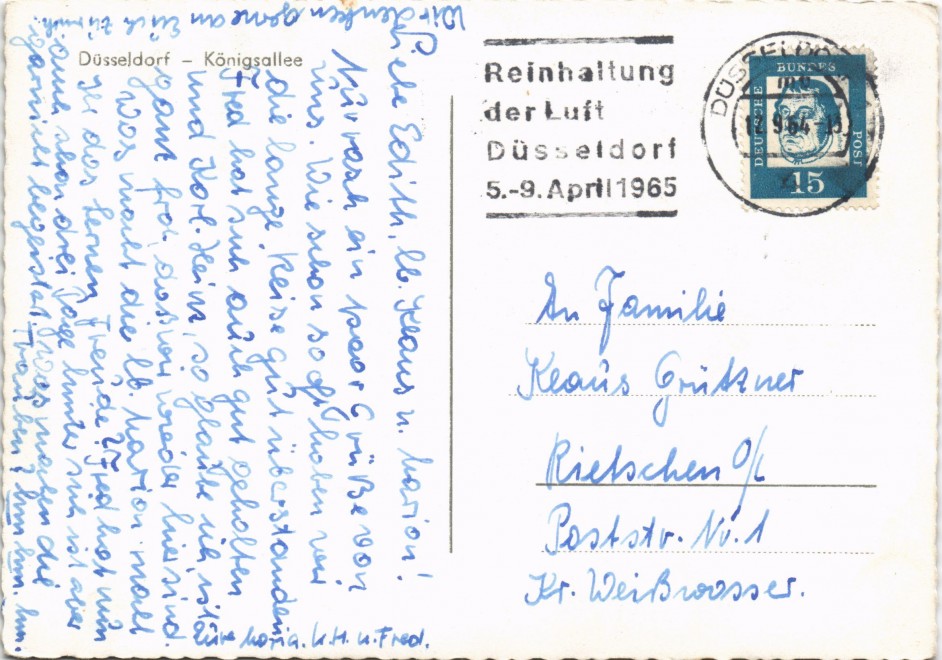 Düsseldorf – Königsallee
Liebe Edith, lb. Klaus u. Marion!
Nun rasch ein paar Grüße von
uns. Wie schon so oft haben wir
die lange Reise gut überstanden
Fred hat sich auch gut gehalten
und Karl-Heinz, so glaube ich ist
ganz froh, dass wir wieder hier sind.
Was macht die lb. Marion macht
ihr das Lernen Freude? Fred hat nun
auch schon drei Tage hinter sich ist aber
garnicht begeistert. Was machen die
Trauben? hm hm. hm.
Wir denken gerne an Euch zurück.
Eure Maria. K.H. u. Fred.
Reinhaltung
der Luft
Düsseldorf
5.-9. April 1965
DÜSSELDORF
9.64
DEUTSCHE
BUNDES
POST
15
An Familie
Klaus Grützner
Rietschen O/L
Poststr. Nr. 1
Kr. Weißwasser.